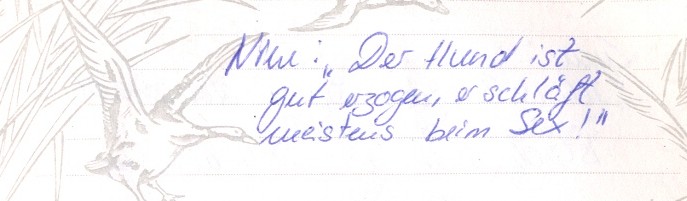 : „Der Hund ist
gut erzogen, er schläft
meistens beim Sex!"